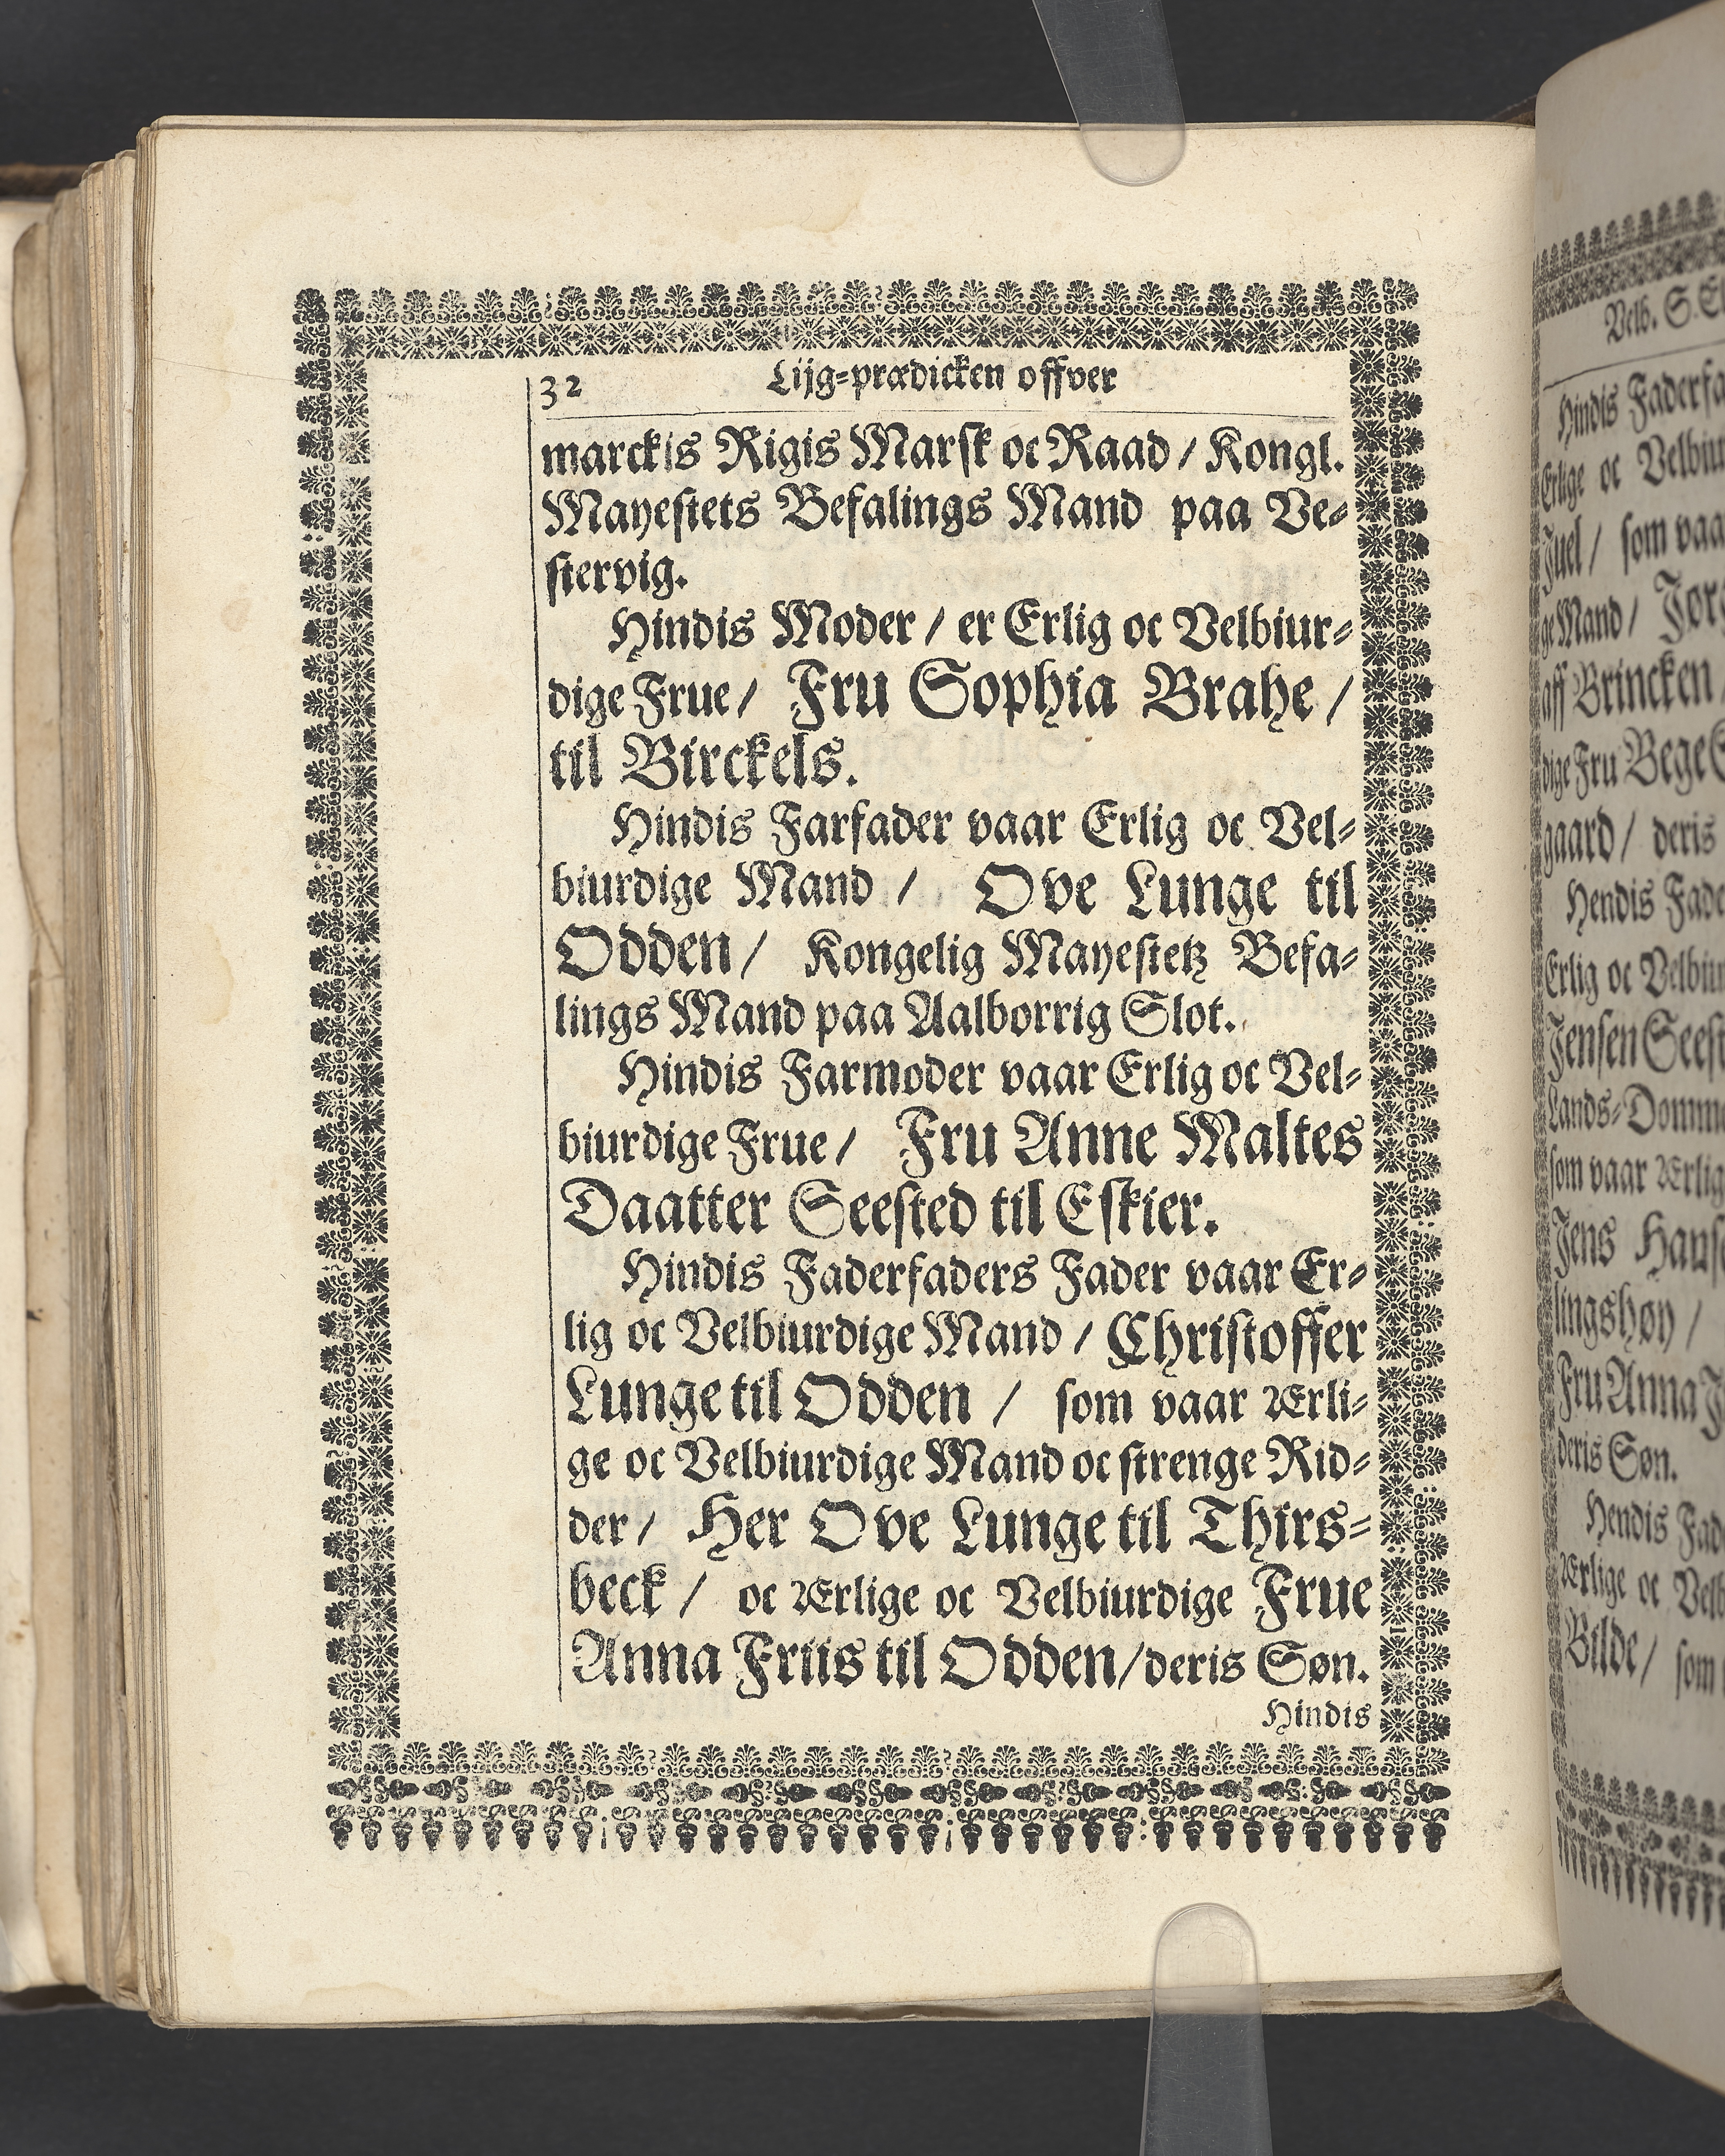 32
Lijg=prædicken offver
marckis Rigis Marsk oc Raad / Kongl.
Mayestets Befalings Mand paa Ve=
stervig.
Hindis Moder / er Erlig oc Velbiur=
dige Frue / Fru Sophia Brahe /
til Birckels.
Hindis Farfader vaar Erlig oc Vel=
biurdige Mand / Ove Lunge til
Odden / Kongelig Mayestetz Befa=
lings Mand paa Aalborrig Slot.
Hindis Farmoder vaar Erlig oc Vel=
biurdige Frue / Fru Anne Maltes
Daatter Seested til Eskier.
Hindis Faderfaders Fader vaar Er=
lig oc Velbiurdige Mand / Christoffer
Lunge til Odden / som vaar Ærli=
ge oc Velbiurdige Mand oc strenge Rid=
der / Her Ove Lunge til Thirs=
beck / oc Ærlige oc Velbiurdige Frue
Anna Friis til Odden / deris Søn.
Hindis
Velb. S.
Hindis Faderfa
Erlige oc Velbiu
Juel / som vaa
ge Mand /
aff Brincken
dige Fru Bege
gaard / deris
Hendis Fade
Erlig oc Velbiu
Jensen Seest
Lands=Domm
som vaar Ærlig
Jens
lingshøy /
Fru Anna
deris Søn.
Hendis Fad
Ærlige oc Velb
Bilde / som